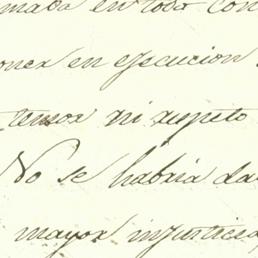 mada en todo con
oner en ejecucion
temor ni respeto
No se habria da
mayor injusticia